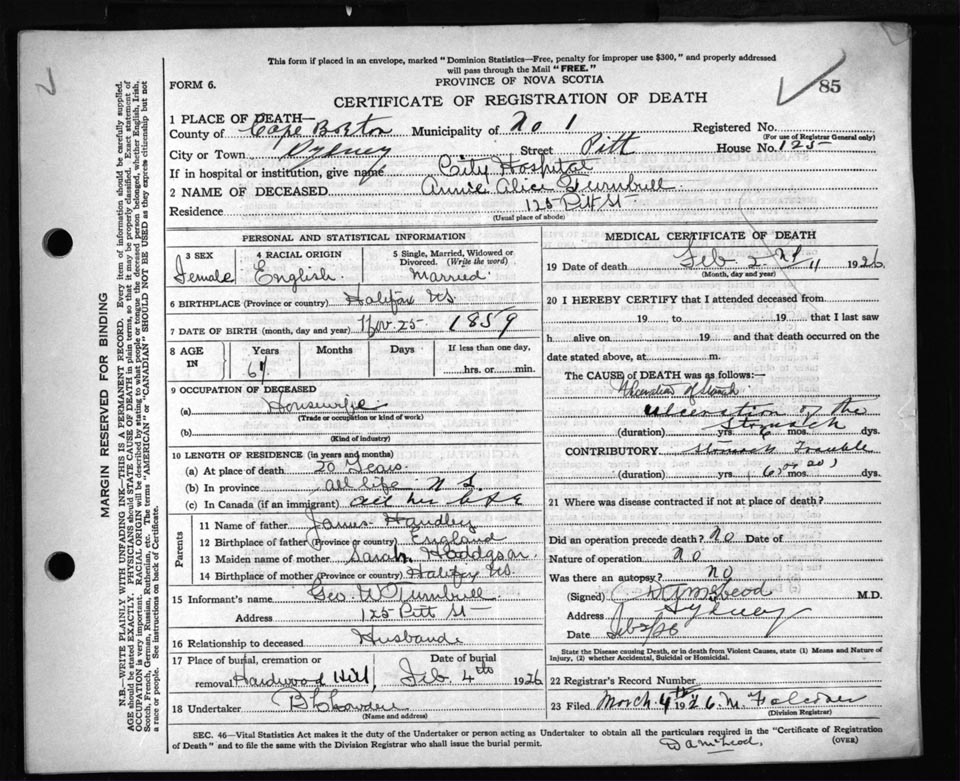 This form if placed in an envelope, marked "Dominion Statistics—Free, penalty for improper use $300," and properly addressed
will pass through the Mail "FREE."
FORM 6.
PROVINCE OF NOVA SCOTIA
85
CERTIFICATE OF REGISTRATION OF DEATH
1 PLACE OF DEATH—
County of Cape Breton Municipality of No 1 Registered No.
(For use of Registrar General only)
City or Town Sydney Street Pitt House No. 125
If in hospital or institution, give name City Hospital
2 NAME OF DECEASED Annie Alice Turnbull
Residence 125 Pitt St
(Usual place of abode)
PERSONAL AND STATISTICAL INFORMATION
3 SEX 4 RACIAL ORIGIN 5 Single, Married, Widowed or Divorced. (Write the word)
Female English. Married
6 BIRTHPLACE (Province or country) Halifax NS.
7 DATE OF BIRTH (month, day and year) Nov. 25 1859
8 AGE IN Years Months Days If less than one day,
hrs. or min.
9 OCCUPATION OF DECEASED
(a) Housewife
(Trade or occupation or kind of work)
(b)
(Kind of industry)
10 LENGTH OF RESIDENCE (in years and months)
(a) At place of death 20 Years.
(b) In province all life N S.
(c) In Canada (if an immigrant) all her life
Parents
11 Name of father James Handley
12 Birthplace of father (Province or country) England
13 Maiden name of mother Sarah Hodgson.
14 Birthplace of mother (Province or country) Halifax NS.
15 Informant's name Geo. W Turnbull
Address 125 Pitt St
16 Relationship to deceased Husband
17 Place of burial, cremation or removal Hardwood Hill, Date of burial Feb. 4th 1926
18 Undertaker
(Name and address)
MEDICAL CERTIFICATE OF DEATH
19 Date of death Feb 2nd 1926
(Month, day and year)
20 I HEREBY CERTIFY that I attended deceased from
19 to 19 that I last saw
h alive on 19 and that death occurred on the
date stated above, at m.
The CAUSE OF DEATH was as follows:—
Ulceration of Stomach
Ulceration of the Stomach
(duration) yrs. 6 mos. dys.
CONTRIBUTORY Stomach Trouble
(duration) yrs. mos. dys.
21 Where was disease contracted if not at place of death?
Did an operation precede death? No Date of
Nature of operation No
Was there an autopsy? No
(Signed) D A McLeod M.D.
Address Sydney
Date Feb 2/26
State the Disease causing Death, or in death from Violent Causes, state (1) Means and Nature of
Injury, (2) whether Accidental, Suicidal or Homicidal.
22 Registrar's Record Number
23 Filed March 4th 1926 M. Falconer
(Division Registrar)
SEC. 46—Vital Statistics Act makes it the duty of the Undertaker or person acting as Undertaker to obtain all the particulars required in the "Certificate of Registration
of Death" and to file the same with the Division Registrar who shall issue the burial permit.
D A McLeod.
(OVER)
MARGIN RESERVED FOR BINDING
N.B.—WRITE PLAINLY WITH UNFADING INK—THIS IS A PERMANENT RECORD. Every item of information should be carefully supplied.
AGE should be stated EXACTLY. PHYSICIANS should STATE CAUSE OF DEATH in plain terms, so that it may be properly classified. Exact statement of
OCCUPATION is very important. RACIAL ORIGIN will be described by stating to what people or tongue the deceased person belonged, whether English, Irish,
Scotch, French, German, Russian, Ruthenian, etc. The terms "AMERICAN" or "CANADIAN" SHOULD NOT BE USED as they express citizenship but not
a race or people. See instructions on back of Certificate.